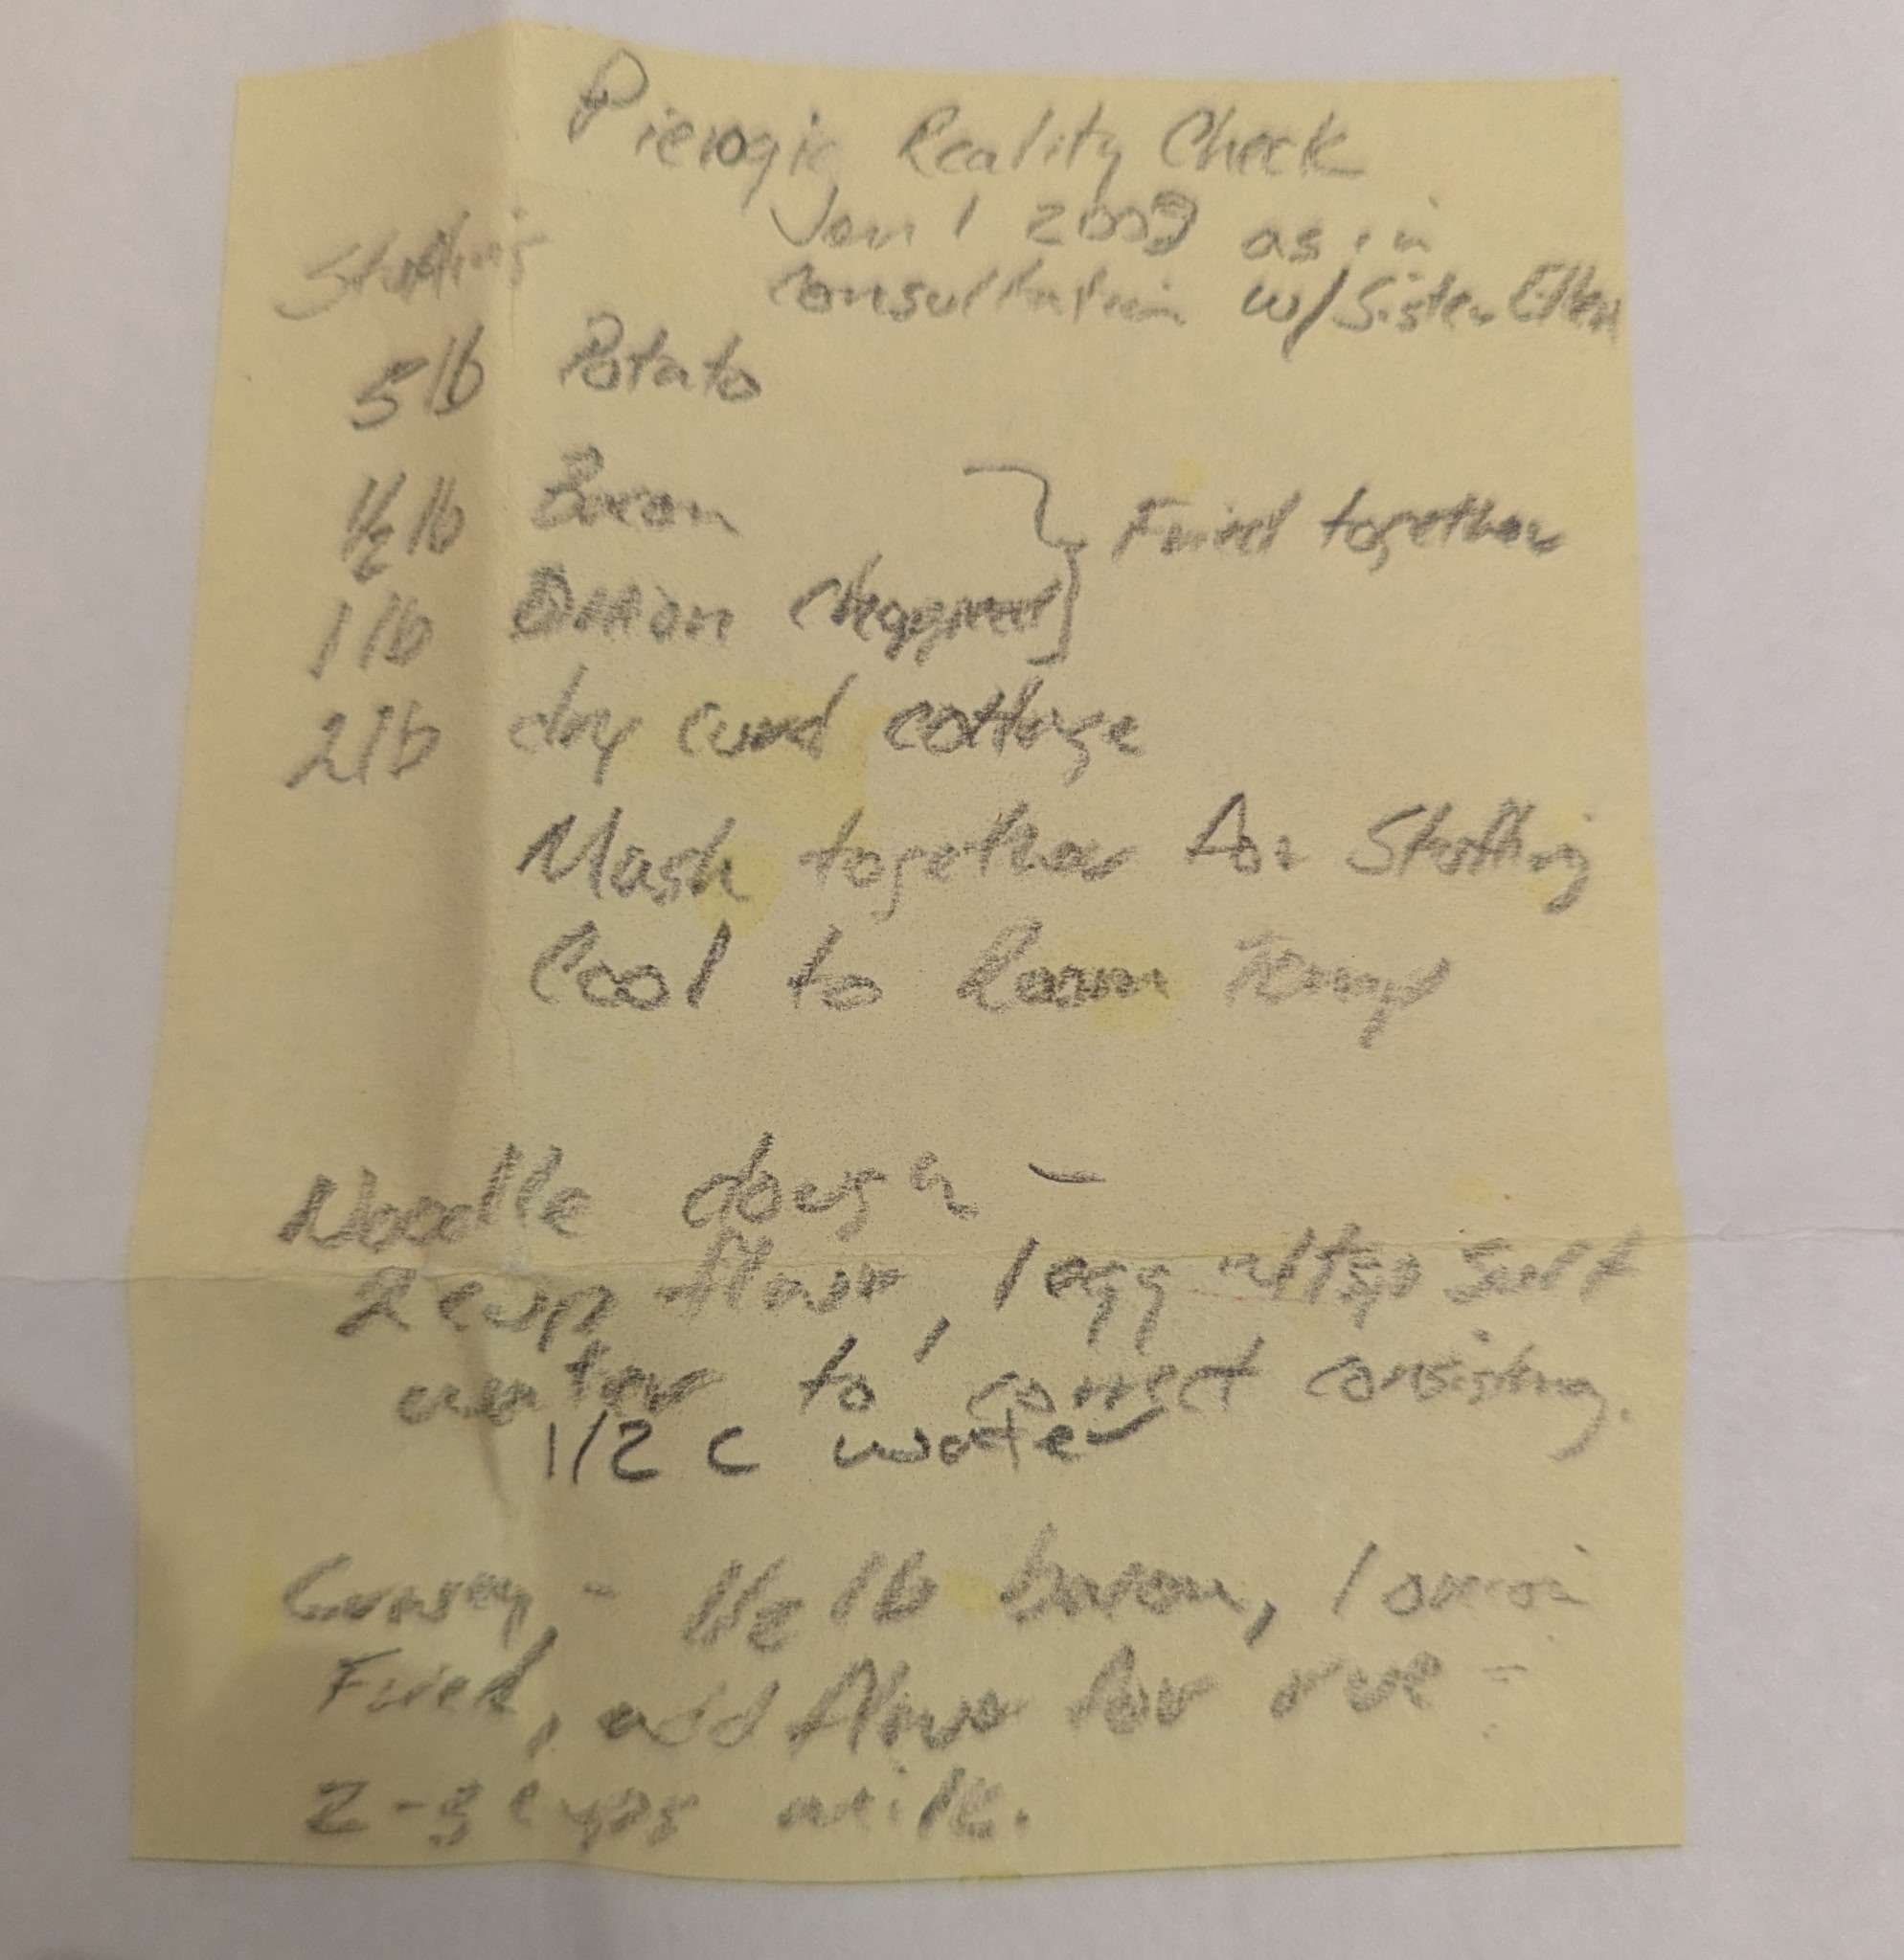 Pierogie Reality Check
Jan 1 2009 as in
consultation w/ Sister Ellen
Stuffing
5 lb Potato
1/2 lb Bacon
1 lb Onion chopped } Fried together
2 lb dry curd cottage
Mash together for Stuffing
Cool to Room Temp
Noodle dough -
2 cup flour, 1 egg 1 tsp Salt
water to correct consistincy.
1/2 c water
Gravy - 1/2 lb bacon, 1 onion
Fried, add flour for rue -
2-3 cups milk.